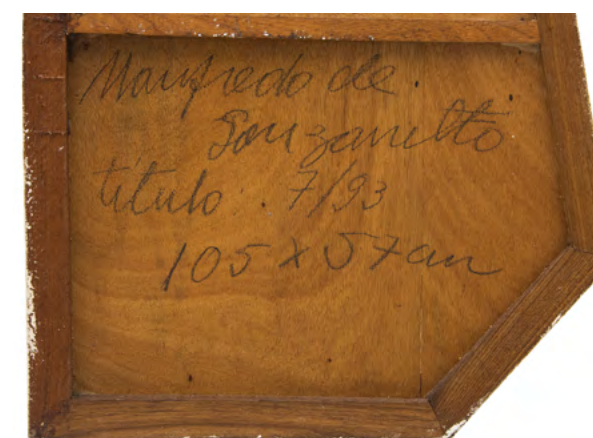 Manfredo de
Souzanetto
título . 7/93
105 x 57 cm